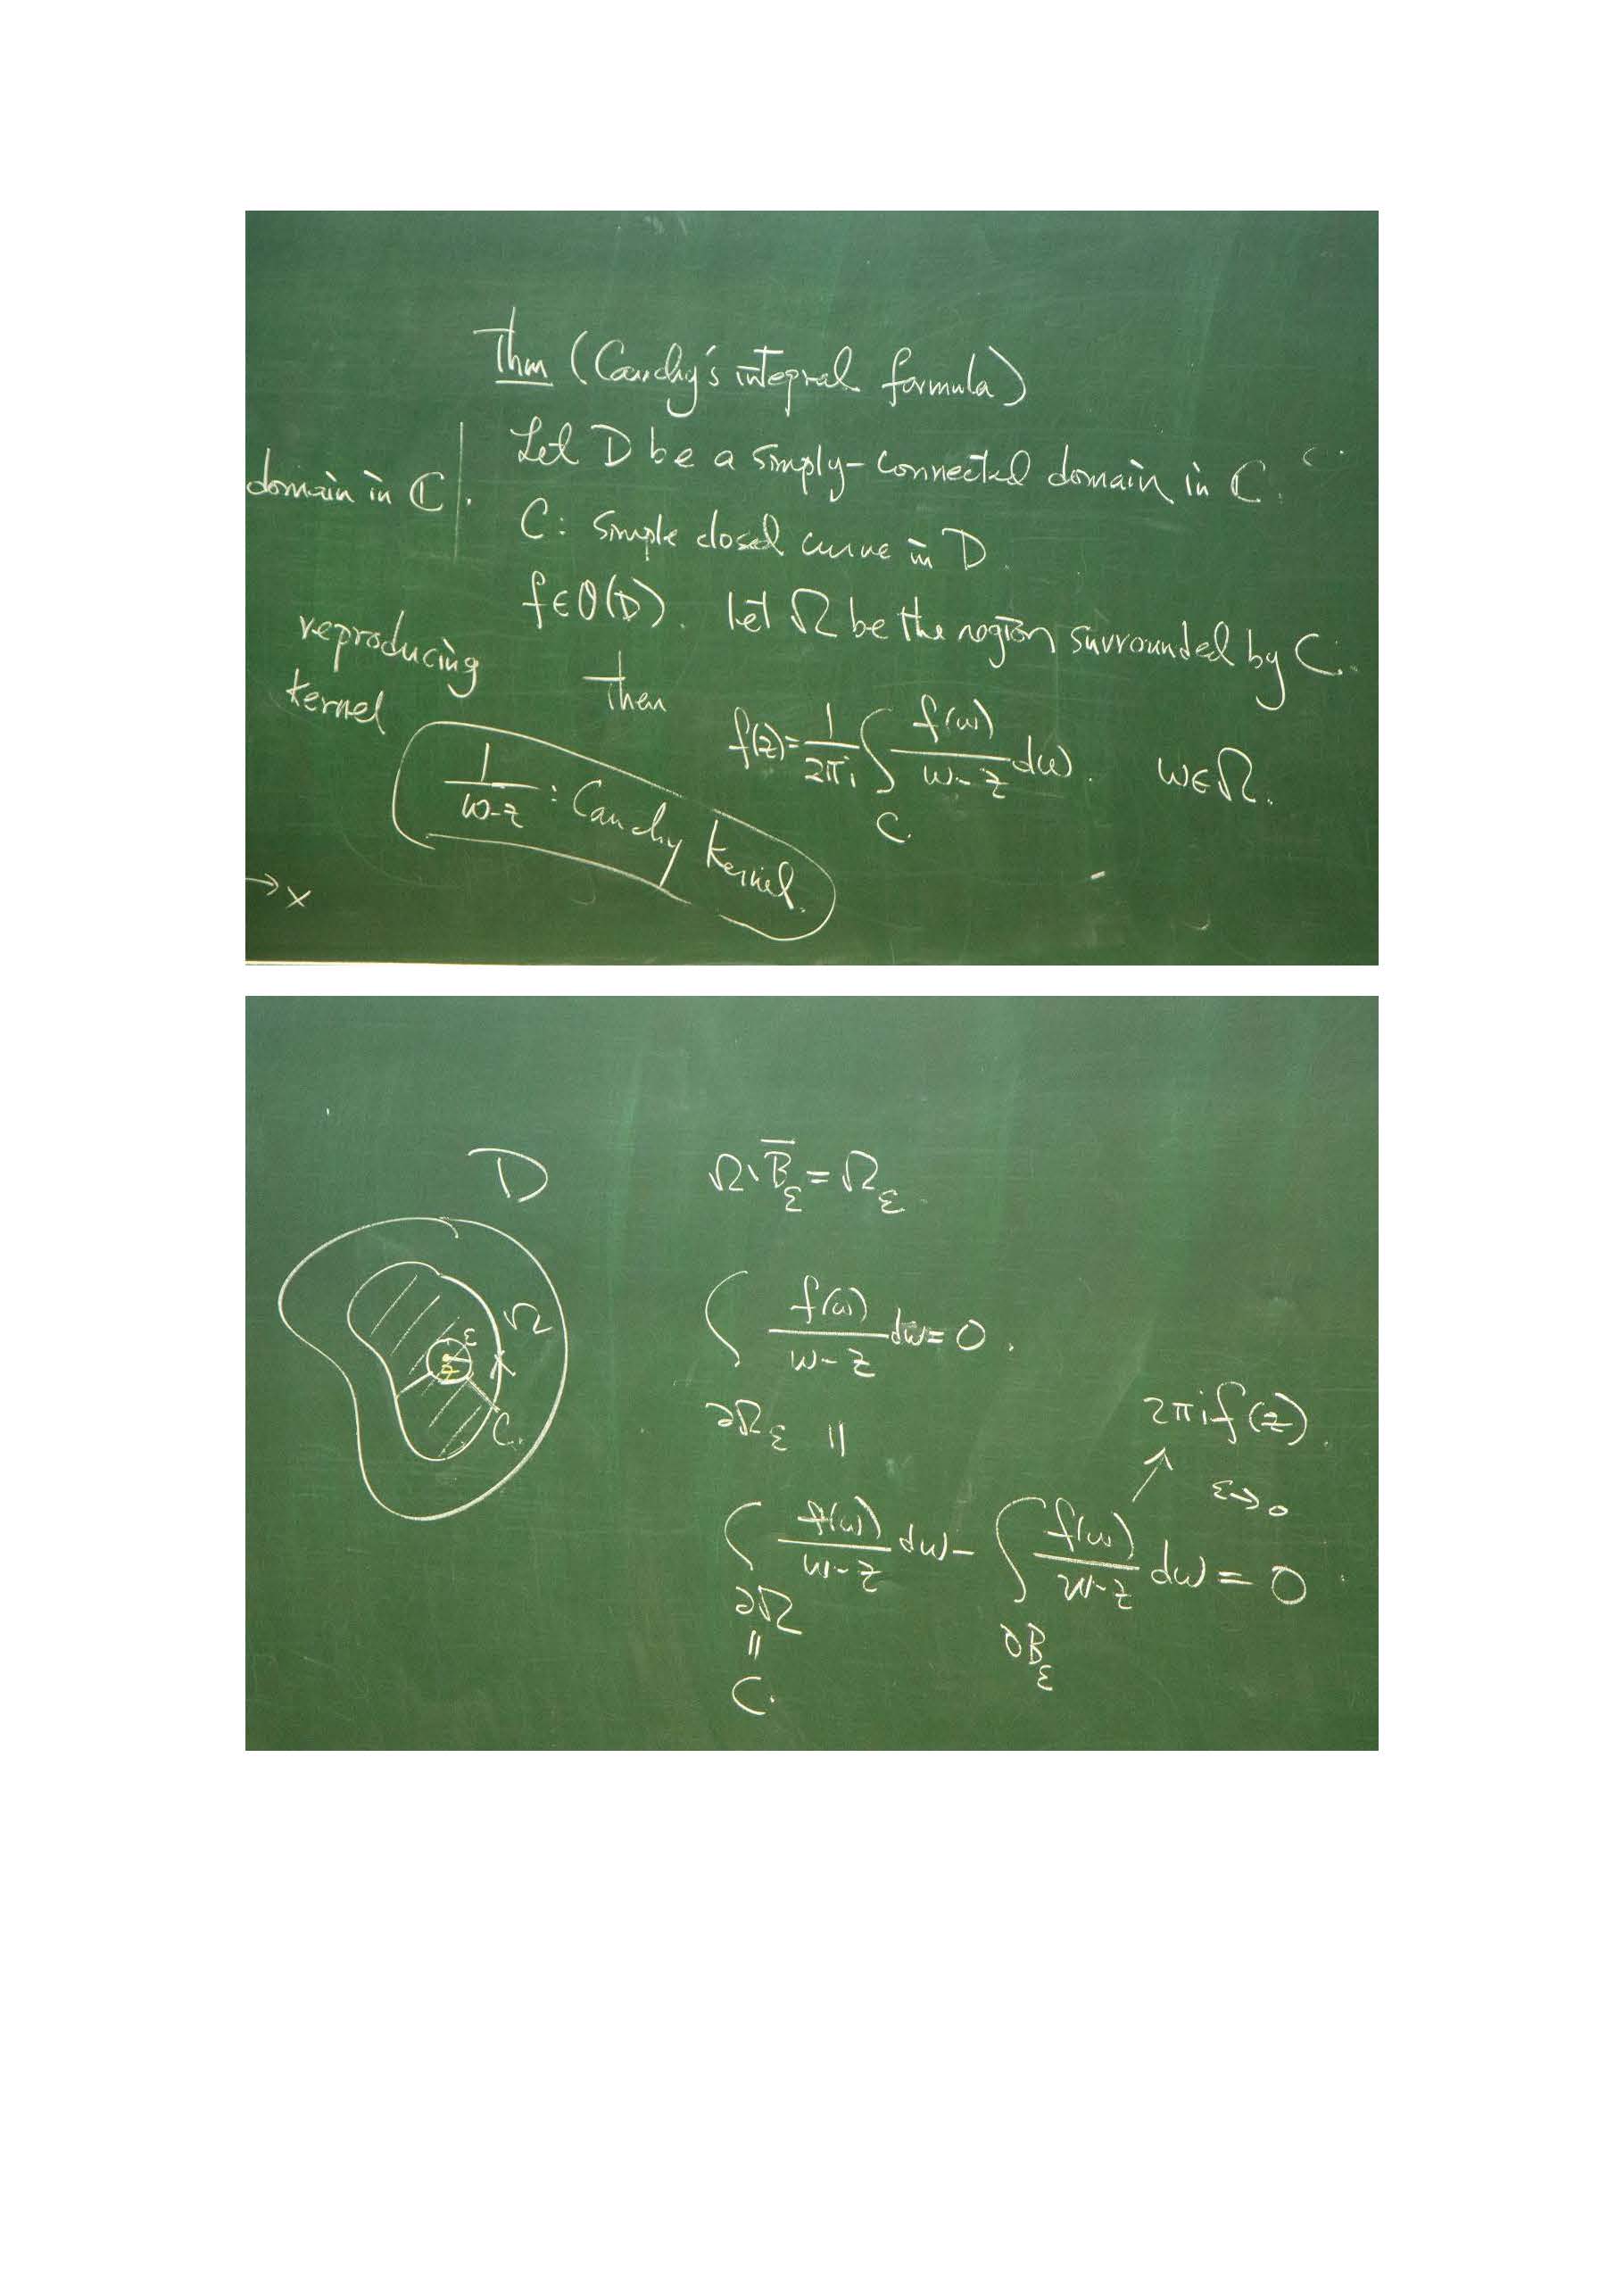 Thm (Cauchy's integral formula)
Let D be a simply-connected domain in ℂ.
domain in ℂ.
C: simple closed curve in D.
f∈O(D). let Ω be the region surrounded by C.
reproducing
kernel
then f(z)=1/2πi ∫_C f(w)/(w-z) dw. w∈Ω.
1/(w-z) : Cauchy kernel.
→x
D
Ω\B̄_ε = Ω_ε.
∫_∂Ω_ε f(w)/(w-z) dw=0.
||
2πi f(z).
↑ ε→0
∫_∂Ω f(w)/(w-z) dw - ∫_∂B_ε f(w)/(w-z) dw = 0.
||
C.
Ω
ε
z
C.